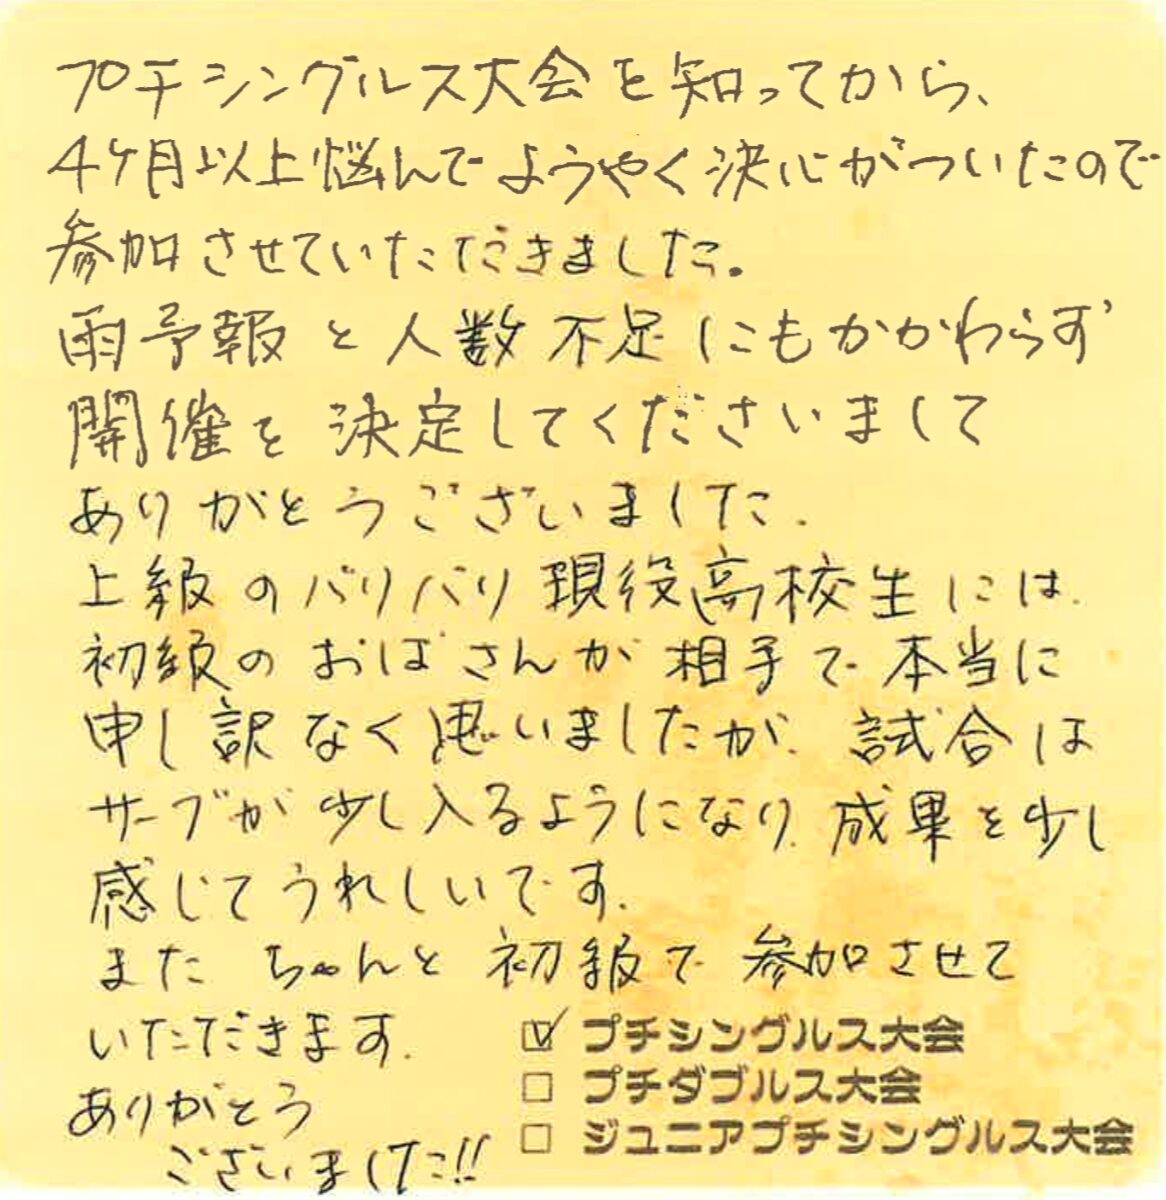 プチシングルス大会を知ってから、
4ヶ月以上悩んでようやく決心がついたので
参加させていただきました。
雨予報と人数不足にもかかわらず
開催を決定してくださいまして
ありがとうございました.
上級のバリバリ現役高校生には.
初級のおばさんが相手で本当に
申し訳なく思いましたが、試合は
サーブが少し入るようになり、成果を少し
感じてうれしいです.
またちゃんと初級で参加させて
いただきます.
ありがとう
ございました!!
☑ プチシングルス大会
□ プチダブルス大会
□ ジュニアプチシングルス大会